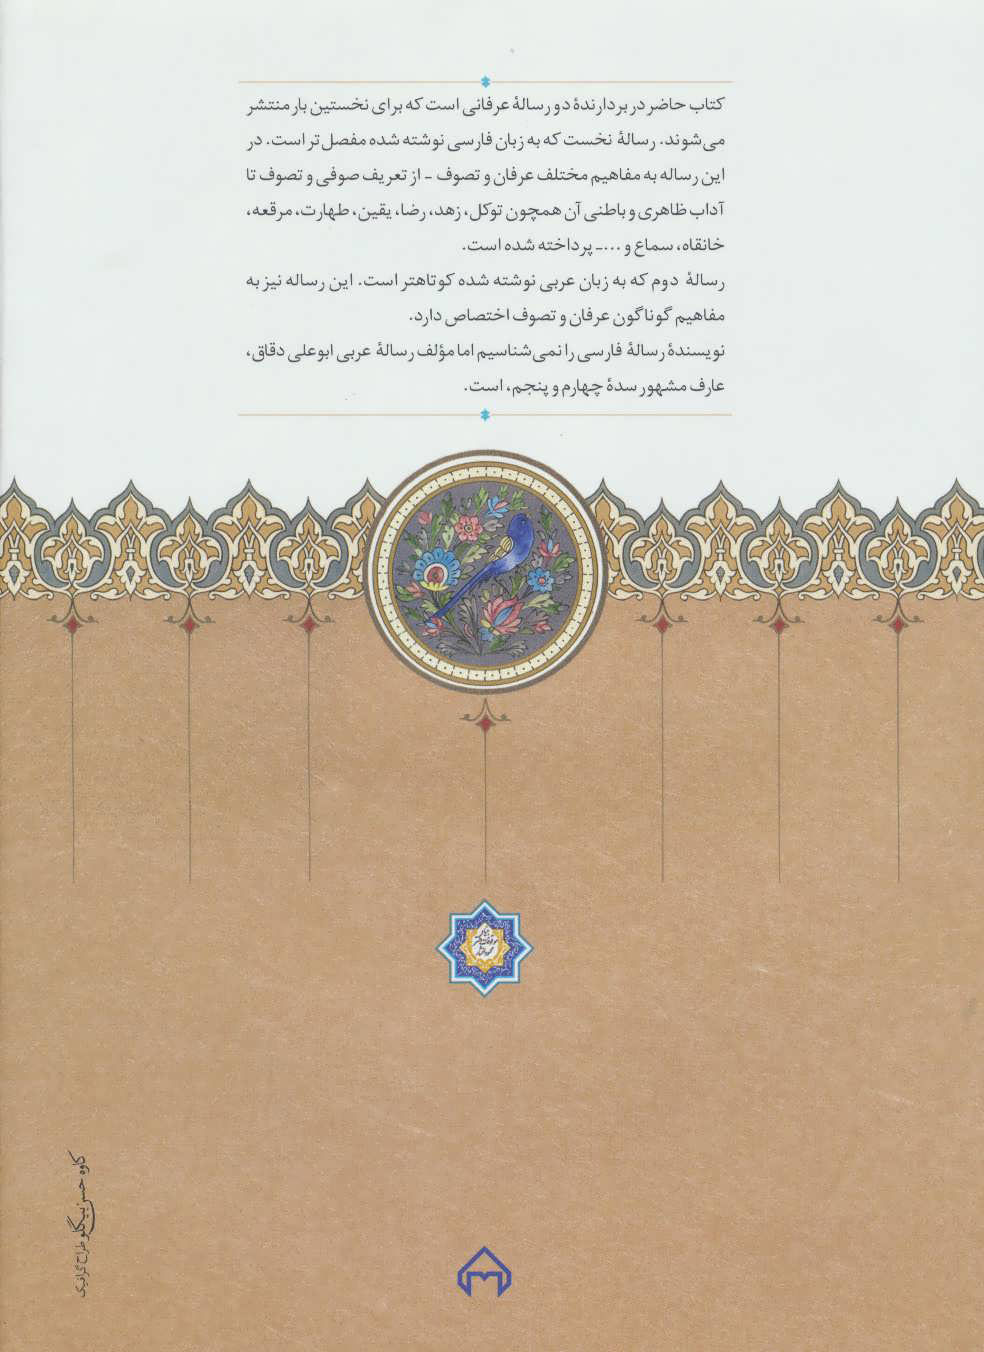 کتاب حاضر در بردارندهٔ دو رسالهٔ عرفانی است که برای نخستین بار منتشر
می‌شوند. رسالهٔ نخست که به زبان فارسی نوشته شده مفصل‌تر است. در
این رساله به مفاهیم مختلف عرفان و تصوف - از تعریف صوفی و تصوف تا
آداب ظاهری و باطنی آن همچون توکل، زهد، رضا، یقین، طهارت، مرقعه،
خانقاه، سماع و ...- پرداخته شده است.
رسالهٔ دوم که به زبان عربی نوشته شده کوتاهتر است. این رساله نیز به
مفاهیم گوناگون عرفان و تصوف اختصاص دارد.
نویسندهٔ رسالهٔ فارسی را نمی‌شناسیم اما مؤلف رسالهٔ عربی ابوعلی دقاق،
عارف مشهور سدهٔ چهارم و پنجم، است.
کاوه حسن‌بیگلو طراح گرافیک